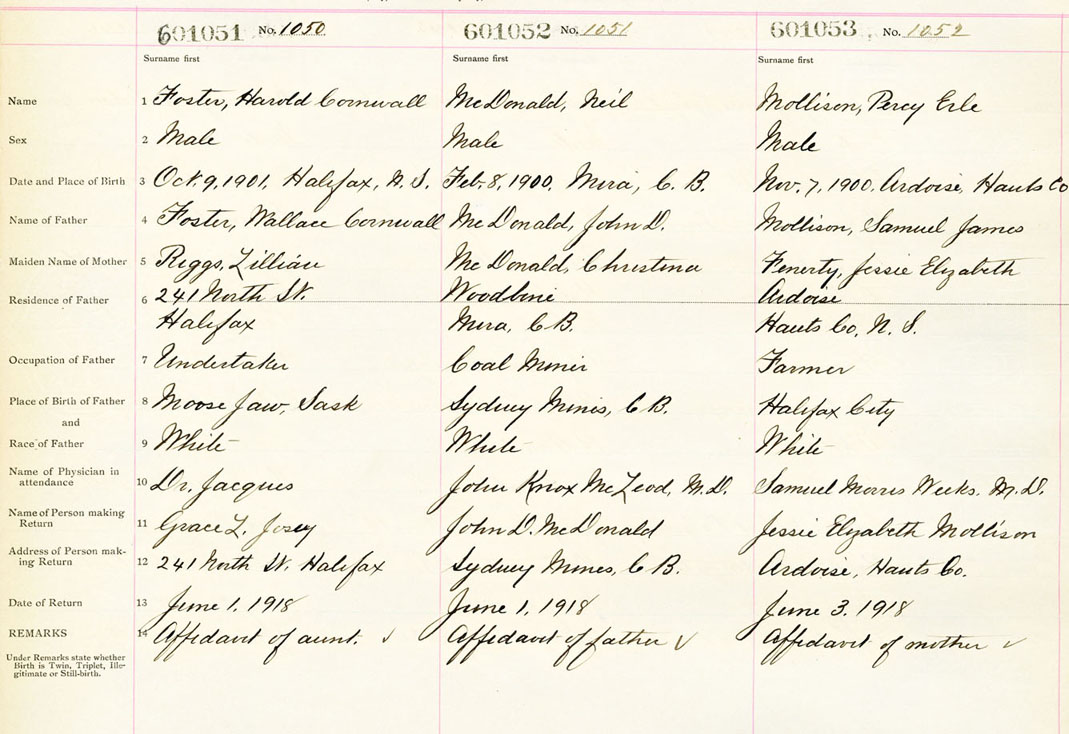 601051 No. 1050 601052 No. 1051 601053 No. 1052
Surname first Surname first Surname first
Name 1 Foster, Harold Cornwall McDonald, Neil Mollison, Percy Erle
Sex 2 Male Male Male
Date and Place of Birth 3 Oct. 9, 1901, Halifax, N. S. Feb. 8, 1900, Mira, C. B. Nov. 7, 1900. Ardoise, Hants Co
Name of Father 4 Foster, Wallace Cornwall McDonald, John D. Mollison, Samuel James
Maiden Name of Mother 5 Riggs, Lillian McDonald, Christina Fenerty, Jessie Elizabeth
Residence of Father 6 241 North St. Woodbine Ardoise
Halifax Mira, C B. Hants Co, N. S.
Occupation of Father 7 Undertaker Coal Miner Farmer
Place of Birth of Father 8 Moose Jaw, Sask Sydney Mines, C B. Halifax City
and
Race of Father 9 White White White
Name of Physician in
attendance 10 Dr. Jacques John Knox McLeod, M.D. Samuel Morris Weeks. M.D.
Name of Person making
Return 11 Grace L. Josey John D. McDonald Jessie Elizabeth Mollison
Address of Person mak-
ing Return 12 241 North St. Halifax Sydney Mines, C B. Ardoise, Hants Co.
Date of Return 13 June 1, 1918 June 1, 1918 June 3, 1918
REMARKS 14 Affidavit of aunt. ✓ Affidavit of father ✓ Affidavit of mother ✓
Under Remarks state whether
Birth is Twin, Triplet, Ille-
gitimate or Still-birth.